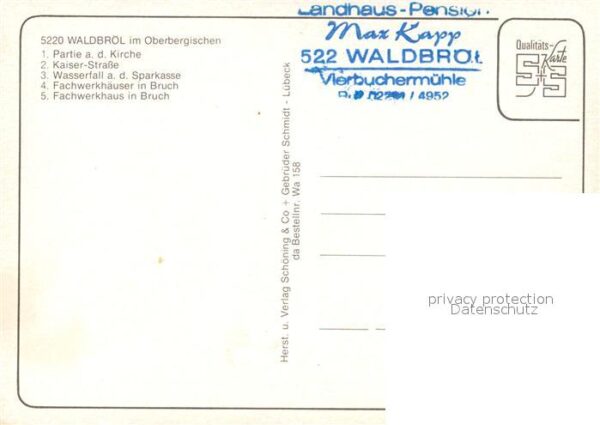 5220 WALDBRÖL im Oberbergischen
1. Partie a. d. Kirche
2. Kaiser-Straße
3. Wasserfall a. d. Sparkasse
4. Fachwerkhäuser in Bruch
5. Fachwerkhaus in Bruch
Landhaus-Pension
Max Kapp
522 WALDBRÖL
Vierbuchermühle
/ 4952
Qualitäts-
Karte
S+S
Herst. u. Verlag Schöning & Co + Gebrüder Schmidt - Lübeck
da Bestellnr. Wa 158
privacy protection
Datenschutz